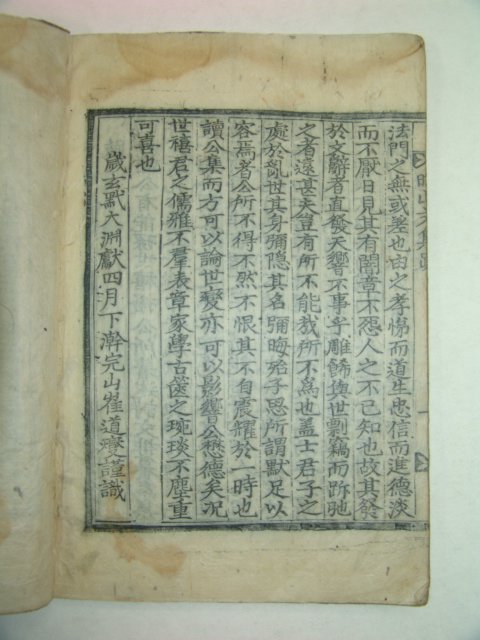 法門之無或差也由之孝悌而道生忠信而進德淡
而不厭日見其有闇章不怨人之不己知也故其發
於文辭者直發天響不事乎雕餙與世剽竊而跅弛
之者遠甚夫豈有所不能哉所不爲也盖士君子之
處於亂世其身彌隱其名彌晦殆子思所謂默足以
容焉者公所不得不然不恨其不自震耀於一時也
讀公集而方可以論世變亦可以影響公懿德矣况
世禧君之儒雅不羣表章家學古篋之琬琰不塵重
可喜也
歲玄黓大淵獻四月下澣完山崔道燮謹識